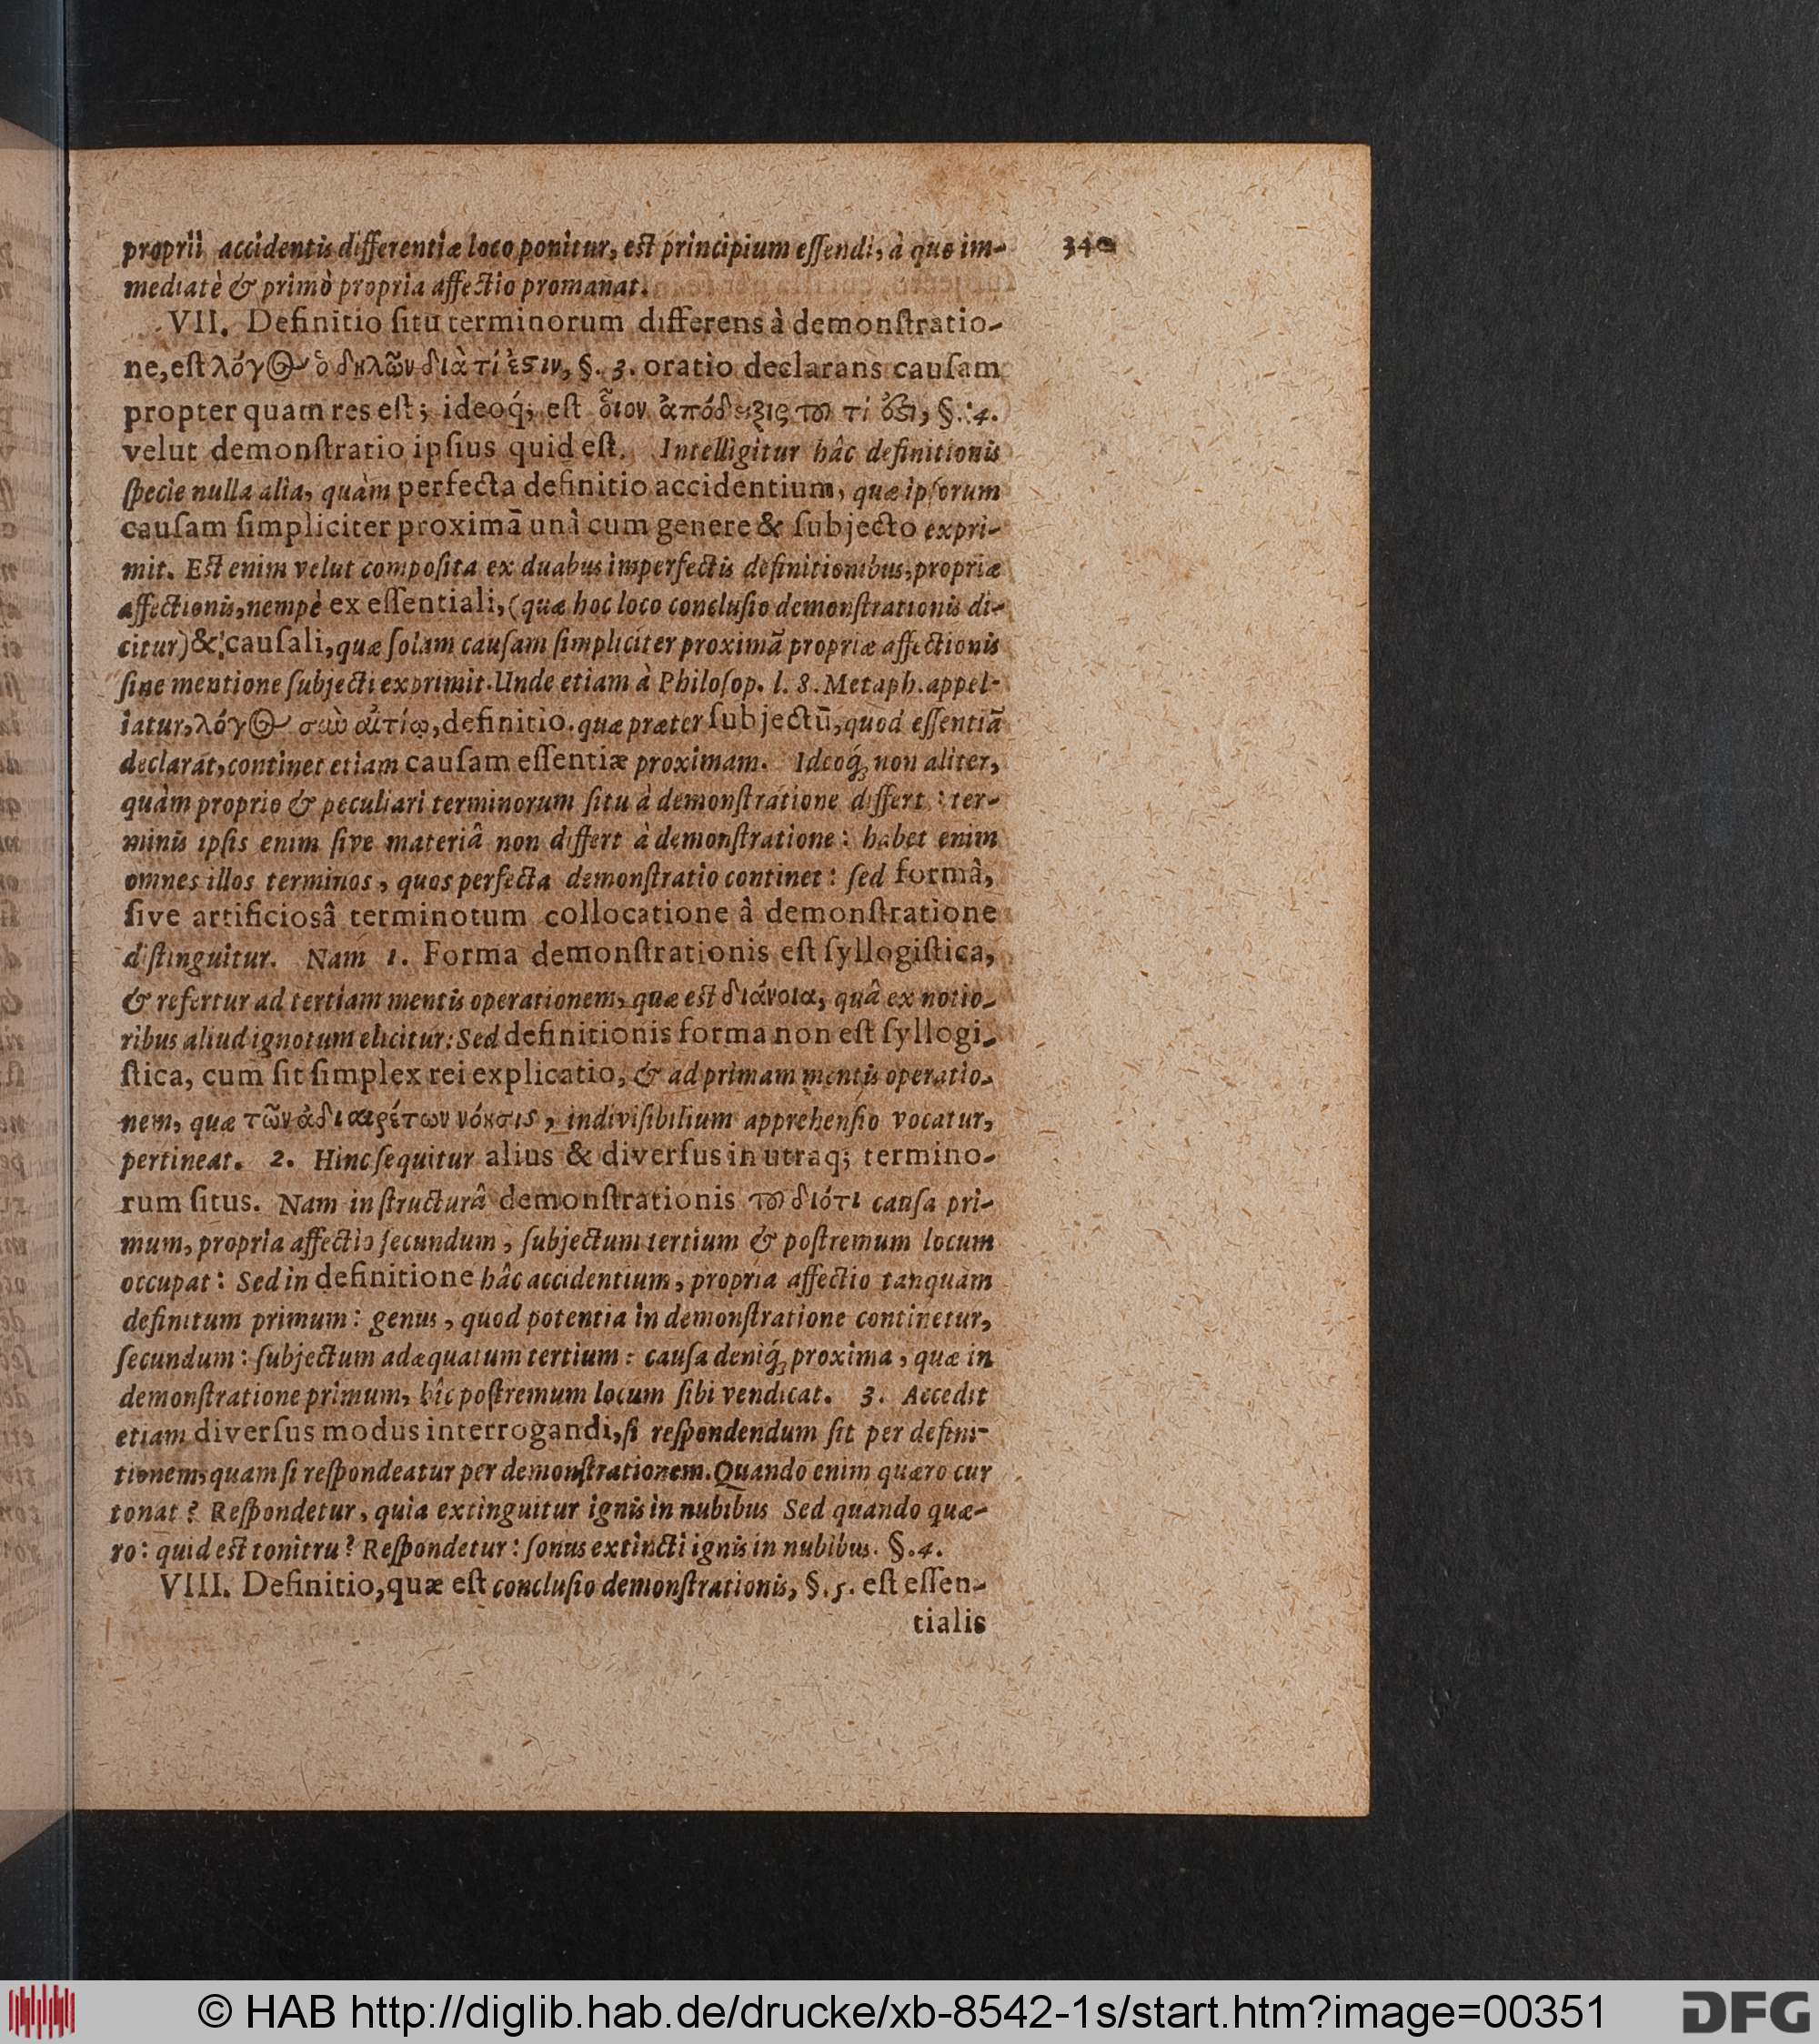 proprii accidentis differentiæ loco ponitur, est principium eſſendi, à quo im- 340
mediatè & primò propria affectio promanat.
VII. Definitio ſitu terminorum differens à demonſtratio-
ne, eſt λόγος ὁ δηλῶν διὰ τί ἐστιν, §. 3. oratio declarans cauſam
propter quam res eſt; ideoq́; eſt οἷον ἀπόδειξις τοῦ τί ἐστι, §. 4.
velut demonſtratio ipſius quid eſt. Intelligitur hâc definitionis
ſpecie nulla alia, quàm perfecta definitio accidentium, quæ ipſorum
cauſam ſimpliciter proximā unâ cum genere & ſubjecto expri-
mit. Est enim velut compoſita ex duabus imperfectis definitionibus, propriæ
affectionis, nempè ex eſſentiali, (quæ hoc loco concluſio demonſtrationis di-
citur) & cauſali, quæ ſolam cauſam ſimpliciter proximā propriæ affectionis
ſine mentione ſubjecti exprimit. Unde etiam à Philoſop. l. 8. Metaph. appel-
latur, λόγος σὺν αἰτίῳ, definitio. quæ præter ſubjectū, quod eſſentiā
declarat, continet etiam cauſam eſſentiæ proximam. Ideoq́; non aliter,
quàm proprio & peculiari terminorum ſitu à demonſtratione differt: ter-
minis ipſis enim ſive materiâ non differt à demonſtratione: habet enim
omnes illos terminos, quos perfecta demonſtratio continet: ſed formâ,
ſive artificiosâ terminotum collocatione â demonſtratione
diſtinguitur. Nam 1. Forma demonſtrationis eſt ſyllogiſtica,
& refertur ad tertiam mentis operationem, quæ est διάνοια, quâ ex notio-
ribus aliud ignotum elicitur: Sed definitionis forma non eſt ſyllogi-
ſtica, cum ſit ſimplex rei explicatio, & ad primam mentis operatio-
nem, quæ τῶν ἀδιαιρέτων νόησις, indiviſibilium apprehenſio vocatur,
pertineat. 2. Hinc ſequitur alius & diverſus in utraq; termino-
rum ſitus. Nam in ſtructurâ demonſtrationis τοῦ διότι cauſa pri-
mum, propria affectio ſecundum, ſubjectum tertium & poſtremum locum
occupat: Sed in definitione hâc accidentium, propria affectio tanquam
definitum primum: genus, quod potentia in demonſtratione continetur,
ſecundum: ſubjectum adæquatum tertium: cauſa deniq́; proxima, quæ in
demonſtratione primum, hîc poſtremum locum ſibi vendicat. 3. Accedit
etiam diverſus modus interrogandi, ſi reſpondendum ſit per defini-
tionem, quam ſi reſpondeatur per demonſtrationem. Quando enim quæro cur
tonat? Reſpondetur, quia extinguitur ignis in nubibus Sed quando quæ-
ro: quid est tonitru? Reſpondetur: ſonus extincti ignis in nubibus. §. 4.
VIII. Definitio, quæ eſt concluſio demonſtrationis, §. 5. eſt eſſen-
tialis
© HAB http://diglib.hab.de/drucke/xb-8542-1s/start.htm?image=00351 DFG